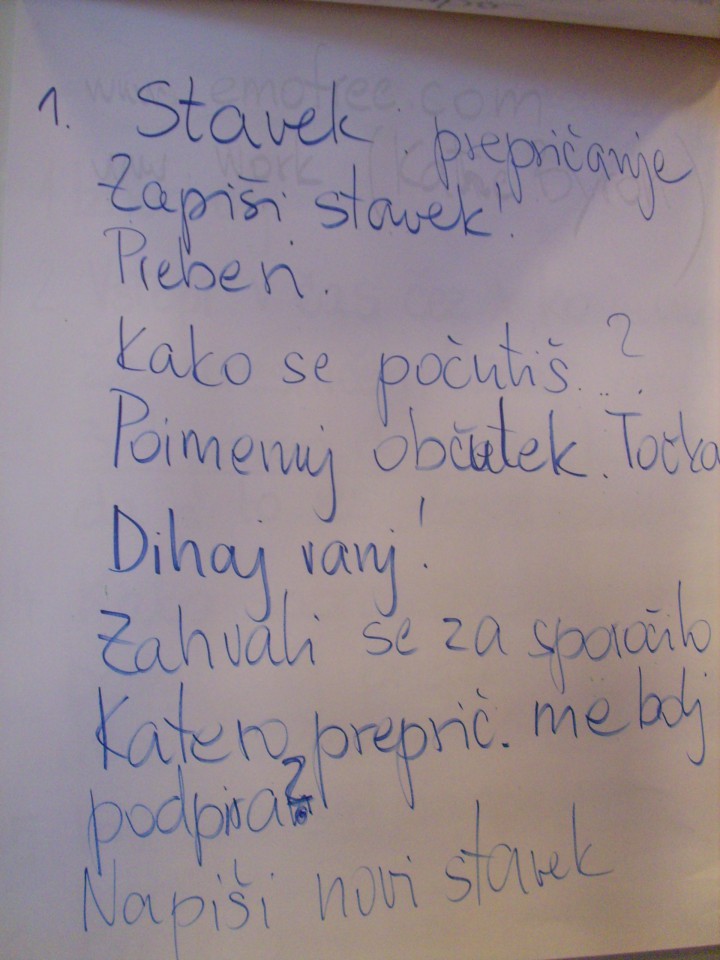 1. Stavek. prepričanje
Zapiši stavek!
Preberi.
Kako se počutiš...?
Poimenuj občutek. Točka
Dihaj vanj!
Zahvali se za sporočilo
Katero preprič. me bolj
podpira?
Napiši novi stavek